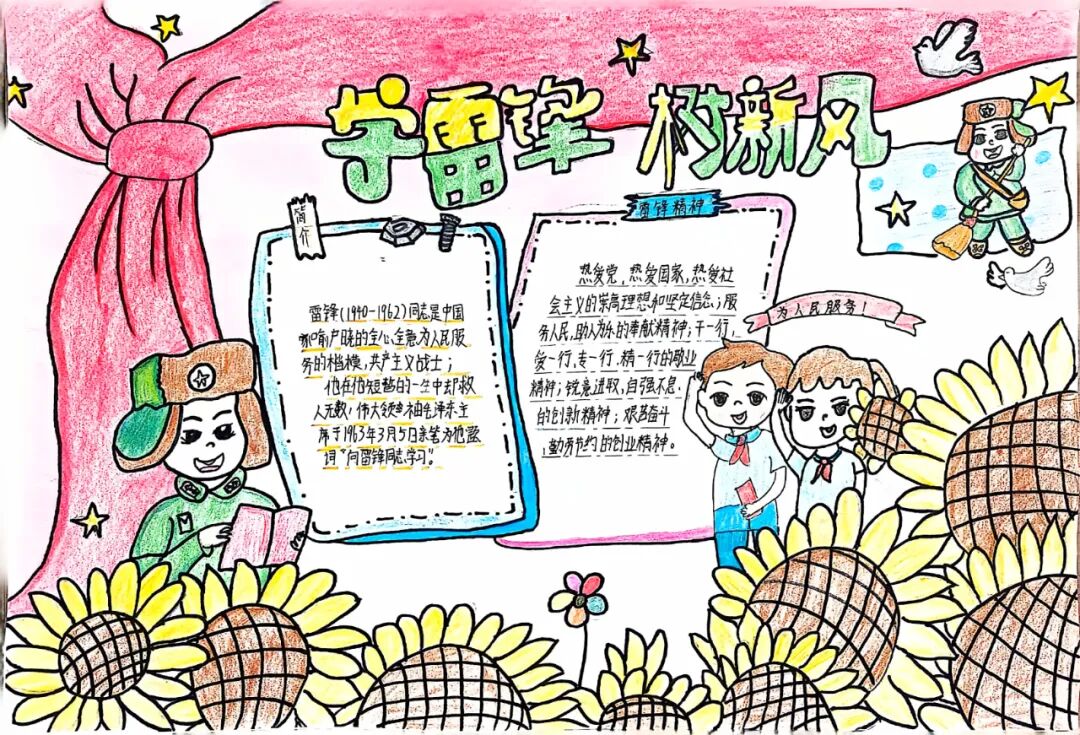 学雷锋 树新风
简介
雷锋(1940-1962)同志是中国
家喻户晓的全心全意为人民服
务的楷模,共产主义战士;
他在他短暂的一生中却救
人无数,伟大领袖毛泽东主
席于1963年3月5日亲笔为他题
词"向雷锋同志学习"
雷锋精神
热爱党,热爱国家,热爱社
会主义的崇高理想和坚定信念;服
务人民,助人为乐的奉献精神;干一行,
爱一行,专一行,精一行的敬业
精神;锐意进取,自强不息,
的创新精神;艰苦奋斗
勤劳节约的创业精神。
为人民服务!